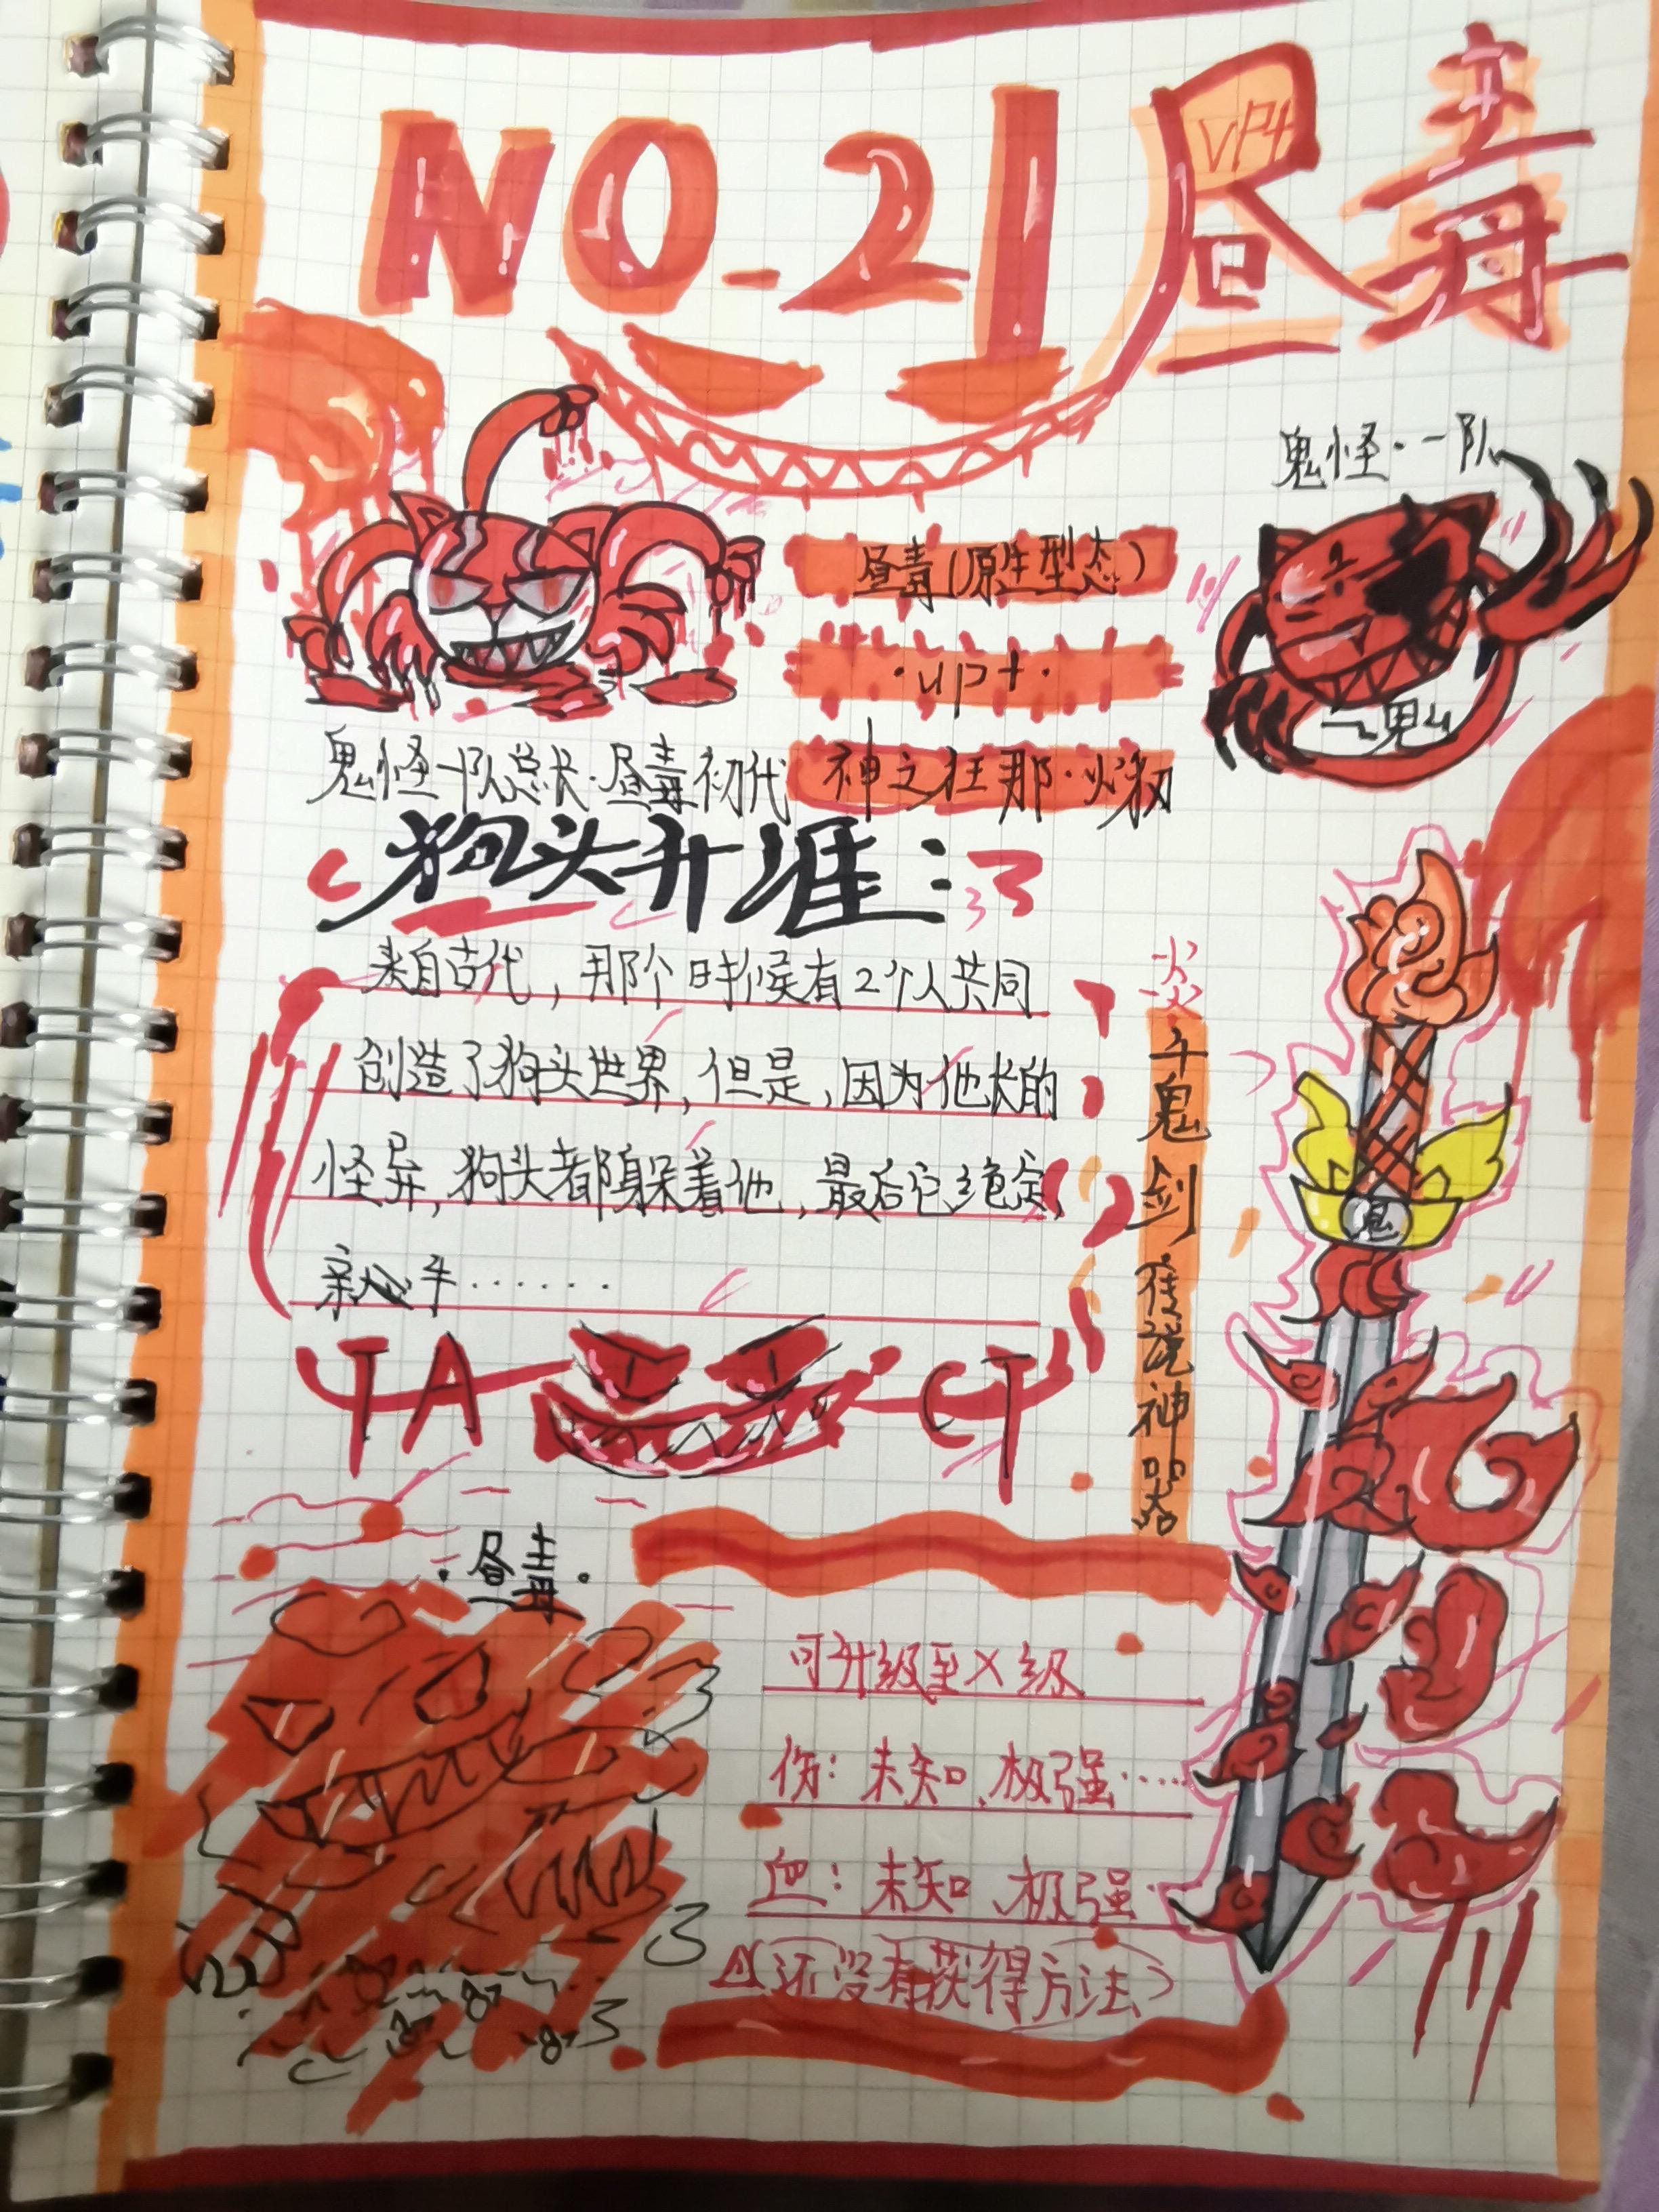 NO.21 昼毒
鬼怪·一队
昼毒(原生型态)
·up+·
鬼怪一队总长·昼毒初代
神之狂那·火初
狗头升涯:
来自古代,那个时候有2个人共同
创造了狗头世界,但是,因为他长的
怪异,狗头都躲着他,最后它绝定,
亲手......
TA
CT
千鬼剑
传说神器
鬼
·昼毒·
可升级至X级
伤:未知、极强.....
血:未知、极强.
(还没有获得方法)